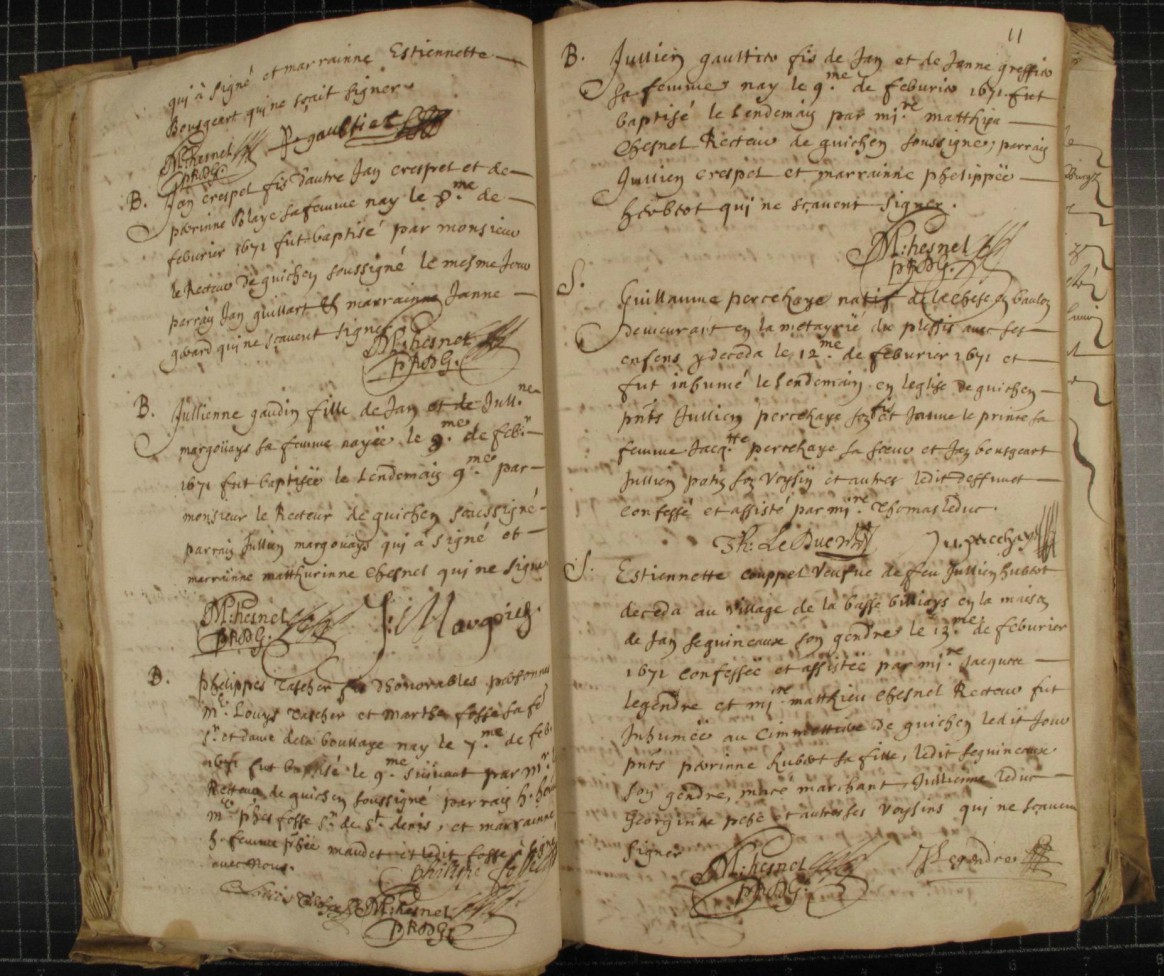 qui à signé et marrainne Estiennette
Bougeart qui ne sçait signer
M: Chesnel P gaultier
PRDG.
B. Jan crespel fis d'autre Jan crespel et de
perinne Polaye sa femme nay le 8.me de
febvrier 1671 fut baptisé par monsieur
le Recteur de guichen soussigné le mesme Jour
parrain Jan guillart et marrainne Janne
gerard qui ne sçavent signer
M: Chesnel
PRDG.
B. Jullienne gaudin fille de Jan et de Jull.ne
margoüays sa femme nayëe le 8.me de feb.r
1671 fut baptisëe le Lendemain 9.me par
monsieur le Recteur de guichen soussigné
parrain Jullien margoüays qui à signé et
marrainne matthurinne Chesnel qui ne signe
M: Chesnel J: Margoüays
PRDG.
B. Philippes Tascher fis d'honorables personnes
M.e Louys Tascher et Marthe fossé sa fe
s.r et dame de la bouttaye nay le 7.me de feb
1671 fut baptisé le 9.me suivant par m.r
Recteur de guichen soussigné parrain h. ho
m.e phes fosse s.r de s.t denis, et marrainne
h. femme phëe maudet et ledit fossé à signé
avec nous.
philippe fossé
Louis Tascher M: Chesnel
PRDG.
11
B. Jullien gaultier fis de Jan et de Janne greffier
sa femme nay le 9.me de febvrier 1671 fut
baptisé le Lendemain par mi.re matthieu
Chesnel Recteur de guichen soussigné, parrain
Jullien crespel et marrainne phelippëe
herbtot qui ne sçavent signer.
M: Chesnel
PRDG.
S. Guillaume percehaye natif de la Chese en baulon
demeurant en la metayrié du plessis avec ses
enfens y deceda le 12.me de febvrier 1671 et
fut inhumé le Lendemain en leglise de guichen
pnts Jullien percehaye son fils Janne le prince sa
femme Jacq.tte percehaye sa soeur et Jan bougeart
Jullien patis son voysin et autres ledit deffunct
confessé et assisté par mi.re Thomas leduc.
Th: Le Duc Ju. percehaye
S. Estiennette couppel veufve de feu Jullien hubtot
deceda au village de la basse billiays en la maison
de Jan seguineaux son gendre le 13.me de febvrier
1671 confessëe et assistëe par mi.re Jacques
legendre et mi.re matthieu Chesnel Recteur fut
Inhumëe au Cimmettiere de guichen ledit Jour
pnts perinne hubtot sa fille, ledit seguineaux
son gendre, macé marchant Jullienne leduc
Georginne et autres ses voysins qui ne sçavent
signer
M: Chesnel J Legendre
PRDG.